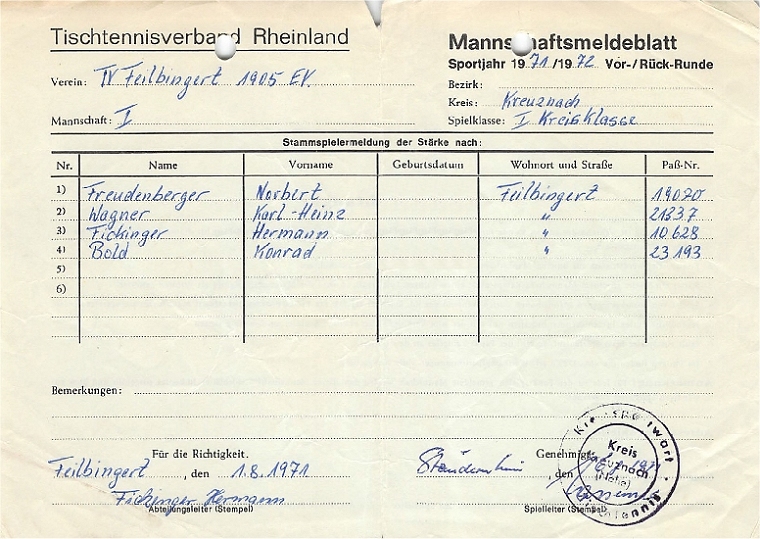 Tischtennisverband Rheinland
Mannschaftsmeldeblatt
Sportjahr 1971/1972 Vor-/Rück-Runde
Verein: TV Feilbingert 1905 EV.
Bezirk:
Kreis: Kreuznach
Mannschaft: I
Spielklasse: I Kreisklasse
Stammspielermeldung der Stärke nach:
Nr. Name Vorname Geburtsdatum Wohnort und Straße Paß-Nr.
1) Freudenberger Norbert Feilbingert 19020
2) Wagner Karl-Heinz " 21337
3) Fickinger Hermann " 10628
4) Bold Konrad " 23193
5)
6)
Bemerkungen:
Für die Richtigkeit. Genehmigt
Feilbingert, den 1.8.1971 , den
Fickinger Hermann
Abteilungsleiter (Stempel) Spielleiter (Stempel)
Kreis
Kreuznach
(Nahe)